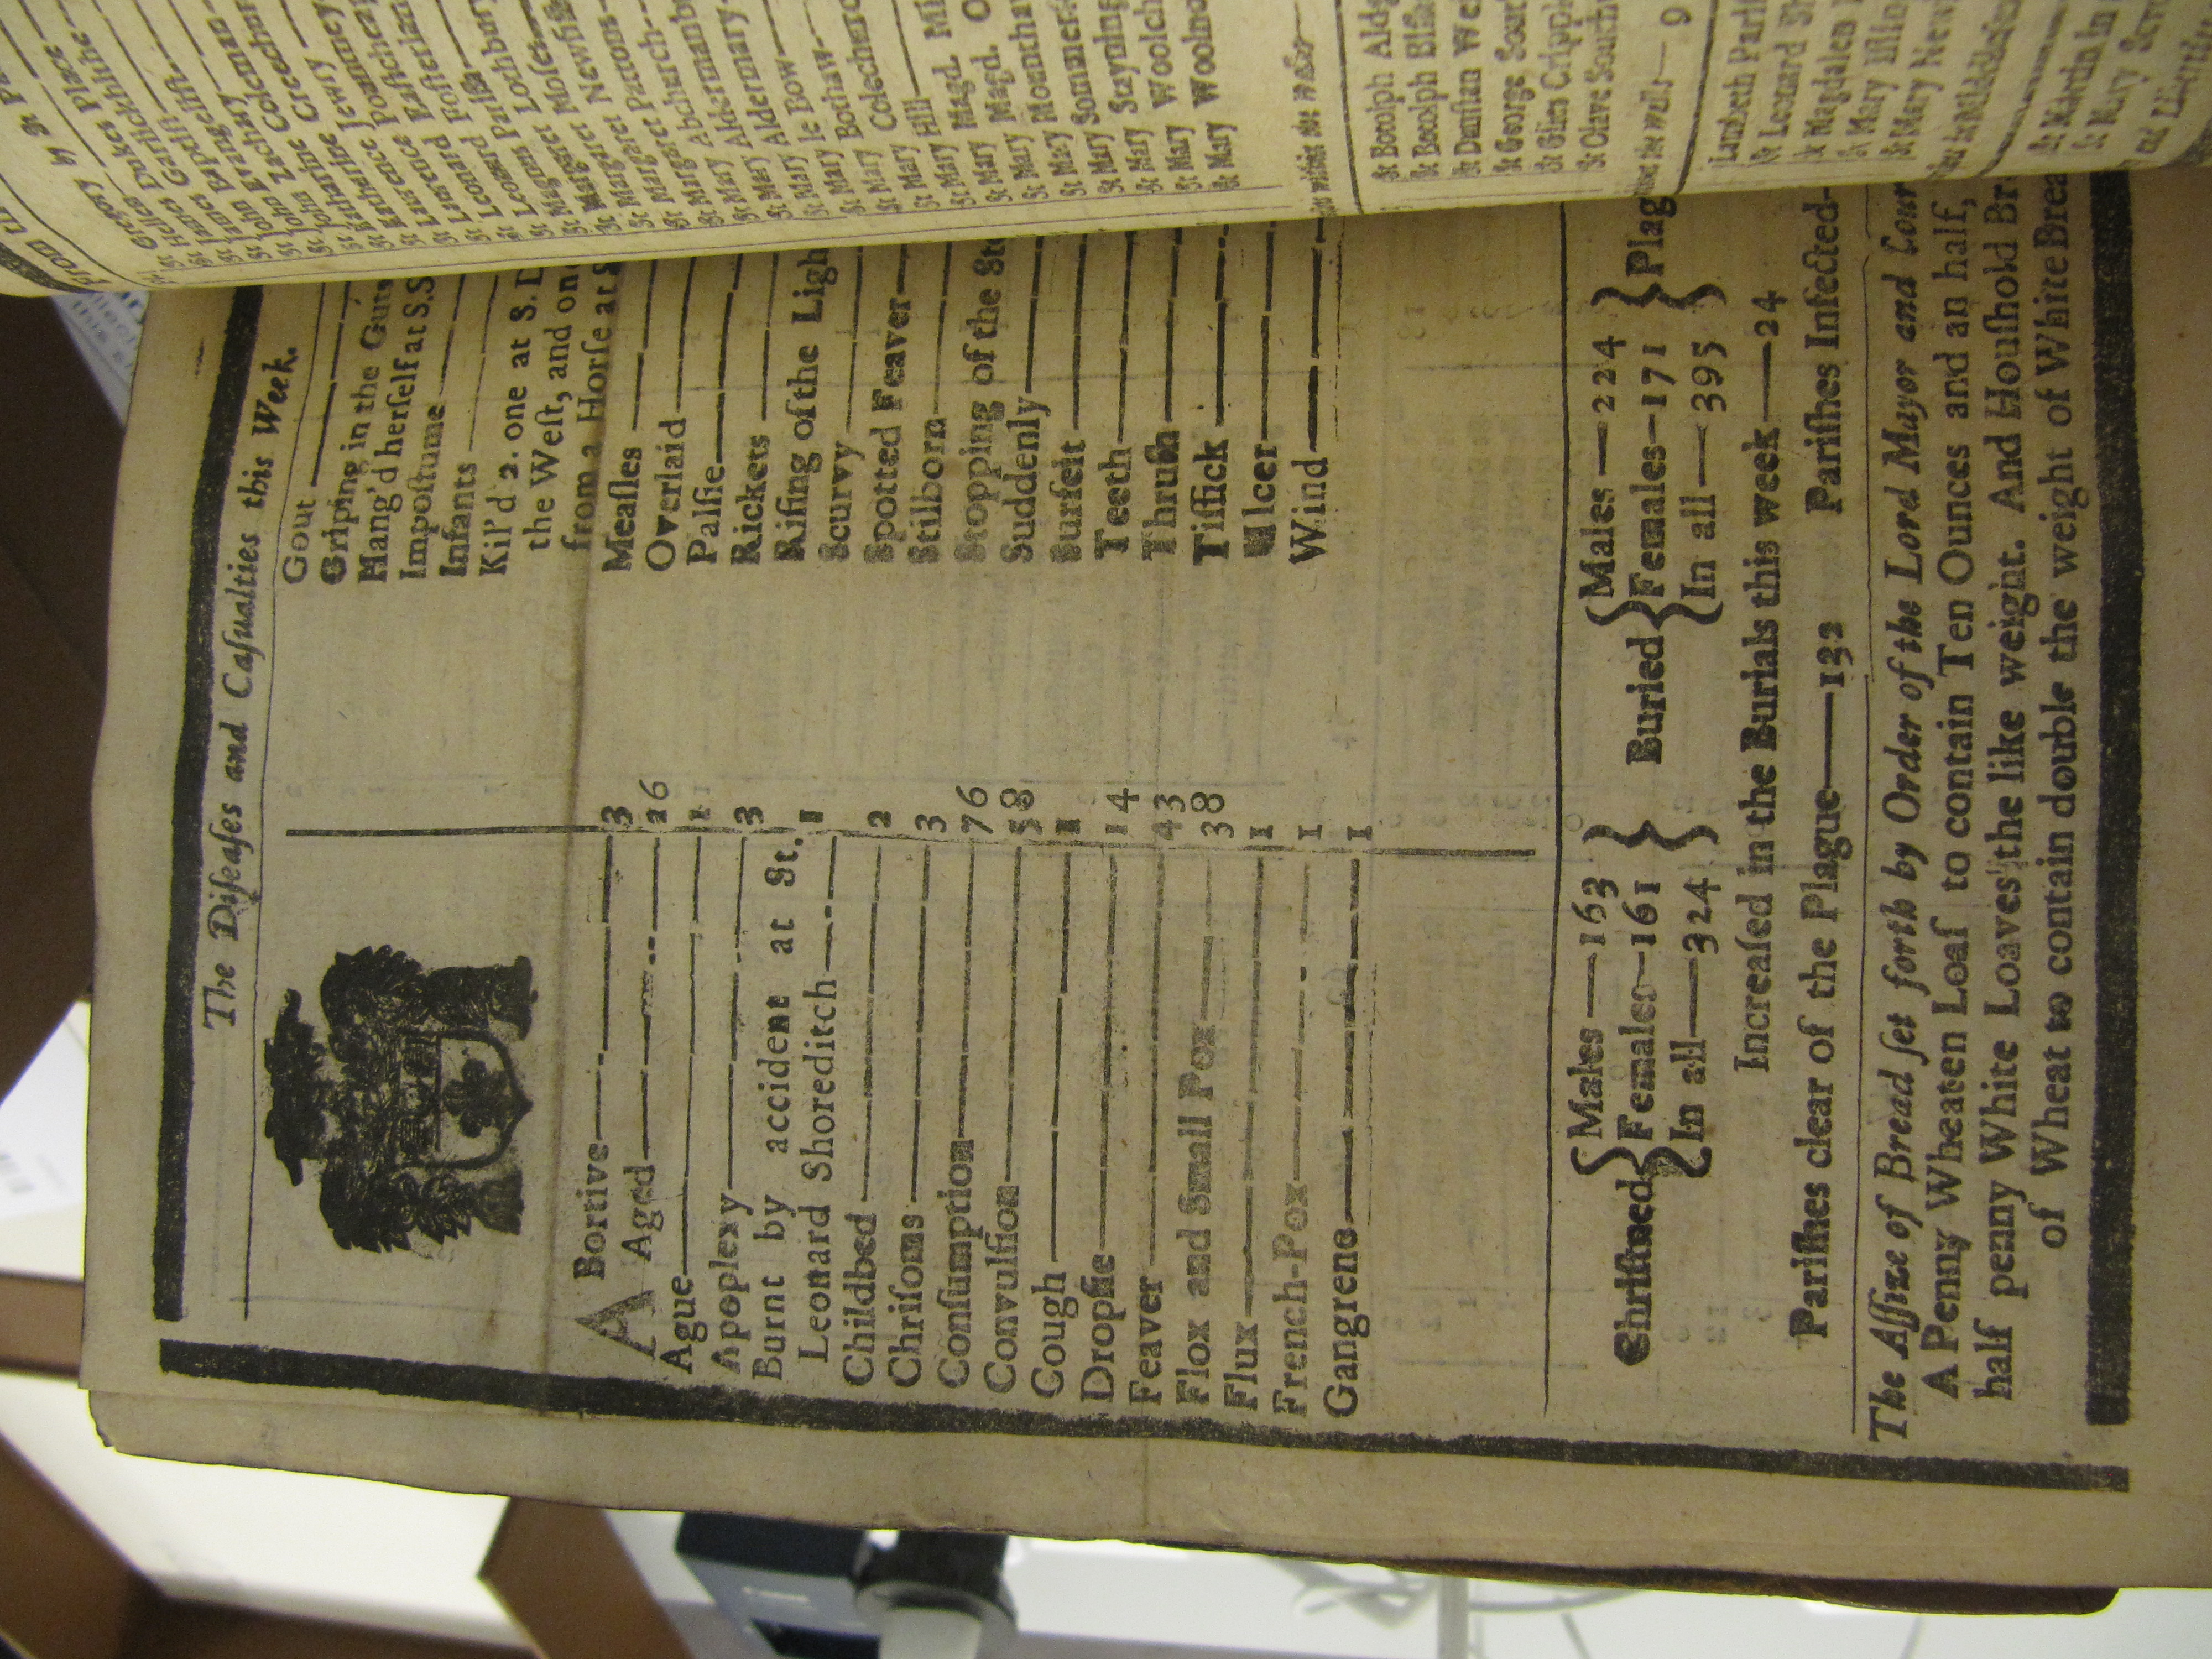 The Diſeaſes and Caſualties this Week.
A Bortive 3
Aged 26
Ague 1
Apoplexy 3
Burnt by accident at St.
Leonard Shoreditch 1
Childbed 2
Chriſoms 3
Conſumption 76
Convulſion 58
Cough 1
Dropſie 14
Feaver 43
Flox and Small Pox 38
Flux 1
French-Pox 1
Gangrene 1
Gout
Griping in the Guts
Hang'd herſelf at S. S
Impoſtume
Infants
Kil'd 2. one at S. D
the Weſt, and on
from a Horſe at S
Meaſles
Overlaid
Palſie
Rickets
Riſing of the Ligh
Scurvy
Spotted Feaver
Stilborn
Stopping of the St
Suddenly
Surfeit
Teeth
Thruſh
Tiſſick
Ulcer
Wind
Chriſtned { Males—163 Females—161 In all—324 } Buried { Males—224 Females—171 In all—395 } Plag
Increaſed in the Burials this week—24
Pariſhes clear of the Plague—132 Pariſhes Infected-
The Aſſize of Bread ſet forth by Order of the Lord Mayor and Cour
A Penny Wheaten Loaf to contain Ten Ounces and an half,
half penny White Loaves the like weight. And Houſhold Br
of Wheat to contain double the weight of White Brea
St Gregory by St P
St Hellen
St James Dukes Place
St James Garlickhithe
St John Baptiſt
St John Evangeliſt
St John Zachary
St Katharine Coleman
St Katharine Creechur
St Lawrence Jewry
St Lawrence Pountney
St Leonard Eaſtcheap
St Leonard Foſter
St Magnus Pariſh
St Margaret Lothbury
St Margaret Moſes
St Margaret Newfiſh
St Margaret Pattons
St Mary Abchurch
St Mary Aldermanb
St Mary Aldermary
St Mary le Bow
St Mary Bothaw
St Mary Colechurc
St Mary Hill
St Mary Magd. Mi
St Mary Magd. O
St Mary Mounthaw
St Mary Sommerſ
St Mary Stayning
St Mary Woolch
St Mary Woolno
St Botolph Aldg
St Botolph Biſh
St Dunſtan Weſ
St George Sout
St Giles Crippl
St Olave South
9
Lambeth Pariſ
St Leonard Sh
St Magdalen
St Mary Iſlin
St Mary Newi
St Martin in
St Mary Savo